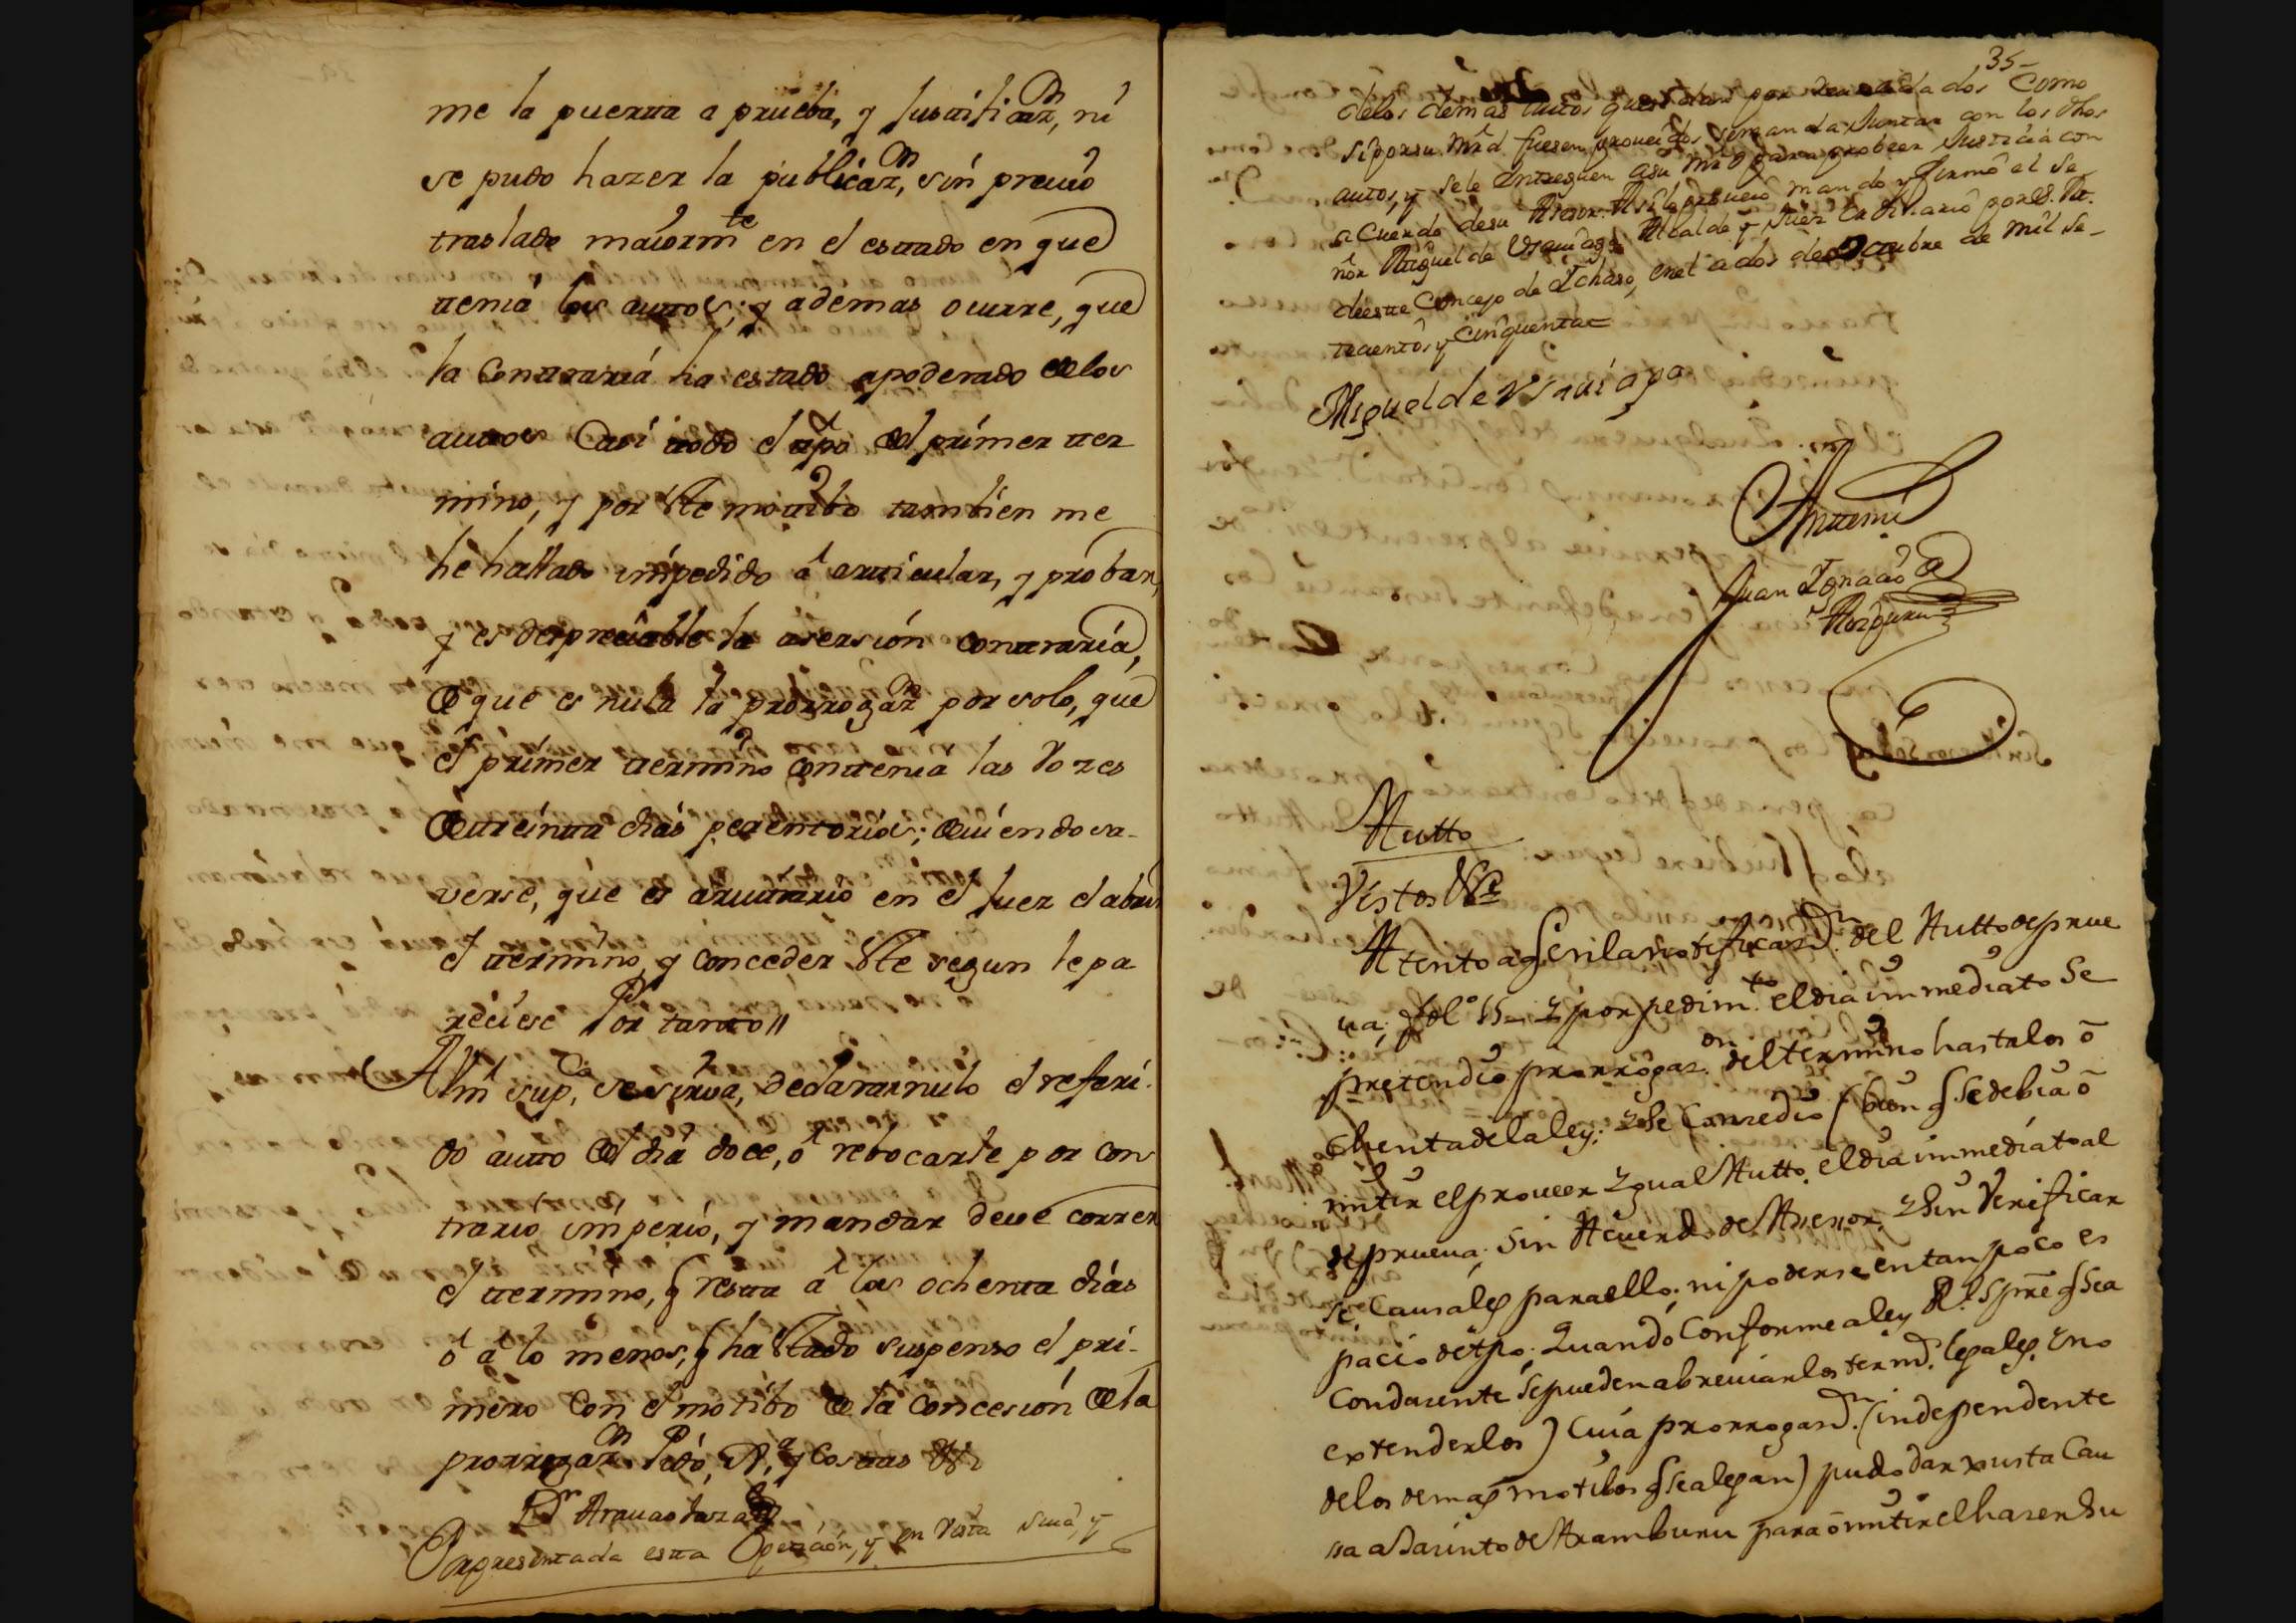 me la puerta a prueba, y justificaz.on, ni
se pudo hazer la publicaz.on, sin previo
traslado maiorm.te en el estado en que
tenia los auttos; y ademas ocurre, que
la Contraria ha estado apoderado de los
auttos Casi todo el tpo del primer ter
mino, y por este motibo tambien me
he hallado impedido á articular, y probar,
y es despreciable la asersion contraria,
de que es nula la prorrogaz.on por solo, que
el primer termino contenia las Vozes
de treinta dias perentorios; deviendo sa-
verse, que es arvitrario en el Juez el abrir
el termino, y conceder este segun le pa
reciese Por tanto //
A Vm sup.co se sirva, declarar nulo el referi-
do autto del dia doce, ó rebocarle por con
trario imperio, y mandar deve correr
el termino, q resta á los ochenta dias
ó á lo menos, q ha estado suspenso el pri-
mero Con el motibo de la concesion de la
prorrogaz.on Pido, Ju.a y Costas &a
D.r Aravaolaza
Prpresentada esta Petizion, y en Vista suia, y
35
de los demas autos que se dan por Como
si por su Mrd fuesen proueidos, se manda Juntar con los dhos
autos, y se le entreguen a su Mrd para probeer Justicia con
aCuerdo de su Asesor. Asi lo probeió mando y firmó el Se-
ñor Miguel de Usquiaga Alcalde y Juez ordinario por S. M.
de este Concejo de Ichaso, en el a dos de Octubre de mil se-
tecientos y Cinquenta=
Miguel de Usquiaga
Antemi
Juan Ignacio de
Aizpuru
Autto
Vistos &a
Atento a q en la notificaz.on del Autto de prue
ua, fol.o 15 y por pedim.to el dia immediato Se
pretendio prorrogaz.on del termino hasta los o
chenta de la ley; y Se Conzedio (bien q Se debia o
mitir el proueer Ygual Autto, el dia immediato al
de prueua, Sin Acuerdo de Asesor, y Sin Verificar
se, Causales para ello; ni poderse en tan poco es
pacio de tpo; Quando Conforme a ley R.l Spre q Sea
Conduzente Se pueden abreuiar los term.s legales, y no
extenderlos) Cuia prorrogaz.on (independente
de los demas motibos q Se alegan) pudo dar xusta Cau
sa a Jazinto de Aramburu para omitir el hazer Su